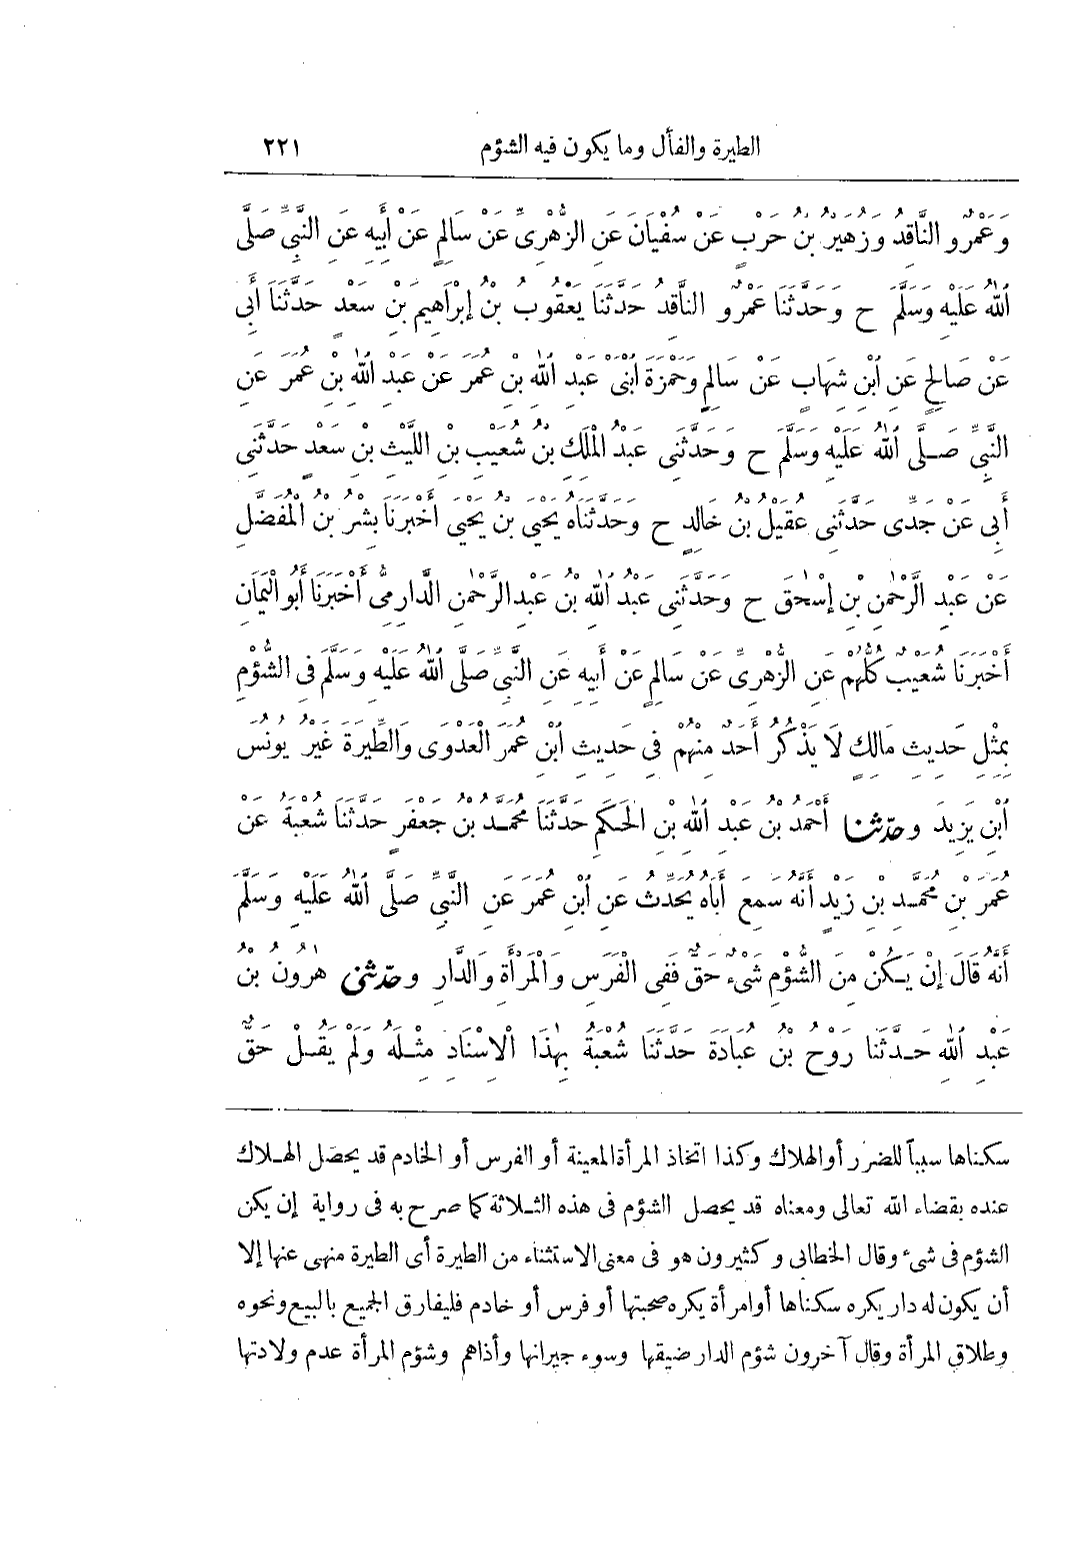 الطيرة والفأل وما يكون فيه الشؤم ٢٢١
وَعَمْرٌو النَّاقِدُ وَزُهَيْرُ بْنُ حَرْبٍ عَنْ سُفْيَانَ عَنِ الزُّهْرِىِّ عَنْ سَالِمٍ عَنْ أَبِيهِ عَنِ النَّبِىِّ صَلَّى
اللّٰهُ عَلَيْهِ وَسَلَّمَ ح وَحَدَّثَنَا عَمْرٌو النَّاقِدُ حَدَّثَنَا يَعْقُوبُ بْنُ إِبْرَاهِيمَ بْنِ سَعْدٍ حَدَّثَنَا أَبِى
عَنْ صَالِحٍ عَنِ ابْنِ شِهَابٍ عَنْ سَالِمٍ وَحَمْزَةَ ابْنَىْ عَبْدِ اللّٰهِ بْنِ عُمَرَ عَنْ عَبْدِ اللّٰهِ بْنِ عُمَرَ عَنِ
النَّبِىِّ صَلَّى اللّٰهُ عَلَيْهِ وَسَلَّمَ ح وَحَدَّثَنِى عَبْدُ الْمَلِكِ بْنُ شُعَيْبِ بْنِ اللَّيْثِ بْنِ سَعْدٍ حَدَّثَنِى
أَبِى عَنْ جَدِّى حَدَّثَنِى عُقَيْلُ بْنُ خَالِدٍ ح وَحَدَّثَنَاهُ يَحْيَى بْنُ يَحْيَى أَخْبَرَنَا بِشْرُ بْنُ الْمُفَضَّلِ
عَنْ عَبْدِ الرَّحْمٰنِ بْنِ إِسْحٰقَ ح وَحَدَّثَنِى عَبْدُ اللّٰهِ بْنُ عَبْدِ الرَّحْمٰنِ الدَّارِمِىُّ أَخْبَرَنَا أَبُو الْيَمَانِ
أَخْبَرَنَا شُعَيْبٌ كُلُّهُمْ عَنِ الزُّهْرِىِّ عَنْ سَالِمٍ عَنْ أَبِيهِ عَنِ النَّبِىِّ صَلَّى اللّٰهُ عَلَيْهِ وَسَلَّمَ فِى الشُّؤْمِ
بِمِثْلِ حَدِيثِ مَالِكٍ لَا يَذْكُرُ أَحَدٌ مِنْهُمْ فِى حَدِيثِ ابْنِ عُمَرَ الْعَدْوَى وَالطِّيَرَةَ غَيْرُ يُونُسَ
ابْنِ يَزِيدَ وحدّثنا أَحْمَدُ بْنُ عَبْدِ اللّٰهِ بْنِ الْحَكَمِ حَدَّثَنَا مُحَمَّدُ بْنُ جَعْفَرٍ حَدَّثَنَا شُعْبَةُ عَنْ
عُمَرَ بْنِ مُحَمَّدِ بْنِ زَيْدٍ أَنَّهُ سَمِعَ أَبَاهُ يُحَدِّثُ عَنِ ابْنِ عُمَرَ عَنِ النَّبِىِّ صَلَّى اللّٰهُ عَلَيْهِ وَسَلَّمَ
أَنَّهُ قَالَ إِنْ يَكُنْ مِنَ الشُّؤْمِ شَىْءٌ حَقٌّ فَفِى الْفَرَسِ وَالْمَرْأَةِ وَالدَّارِ وحدّثنى هٰرُونُ بْنُ
عَبْدِ اللّٰهِ حَدَّثَنَا رَوْحُ بْنُ عُبَادَةَ حَدَّثَنَا شُعْبَةُ بِهٰذَا الْإِسْنَادِ مِثْلَهُ وَلَمْ يَقُلْ حَقٌّ
سكناها سبباً للضرر أو الهلاك وكذا اتخاذ المرأة المعينة أو الفرس أو الخادم قد يحصل الهلاك
عنده بقضاء الله تعالى ومعناه قد يحصل الشؤم فى هذه الثلاثة كما صرح به فى رواية إن يكن
الشؤم فى شىء وقال الخطابى وكثيرون هو فى معنى الاستثناء من الطيرة أى الطيرة منهى عنها إلا
أن يكون له دار يكره سكناها أو امرأة يكره صحبتها أو فرس أو خادم فليفارق الجميع بالبيع ونحوه
وطلاق المرأة وقال آخرون شؤم الدار ضيقها وسوء جيرانها وأذاهم وشؤم المرأة عدم ولادتها